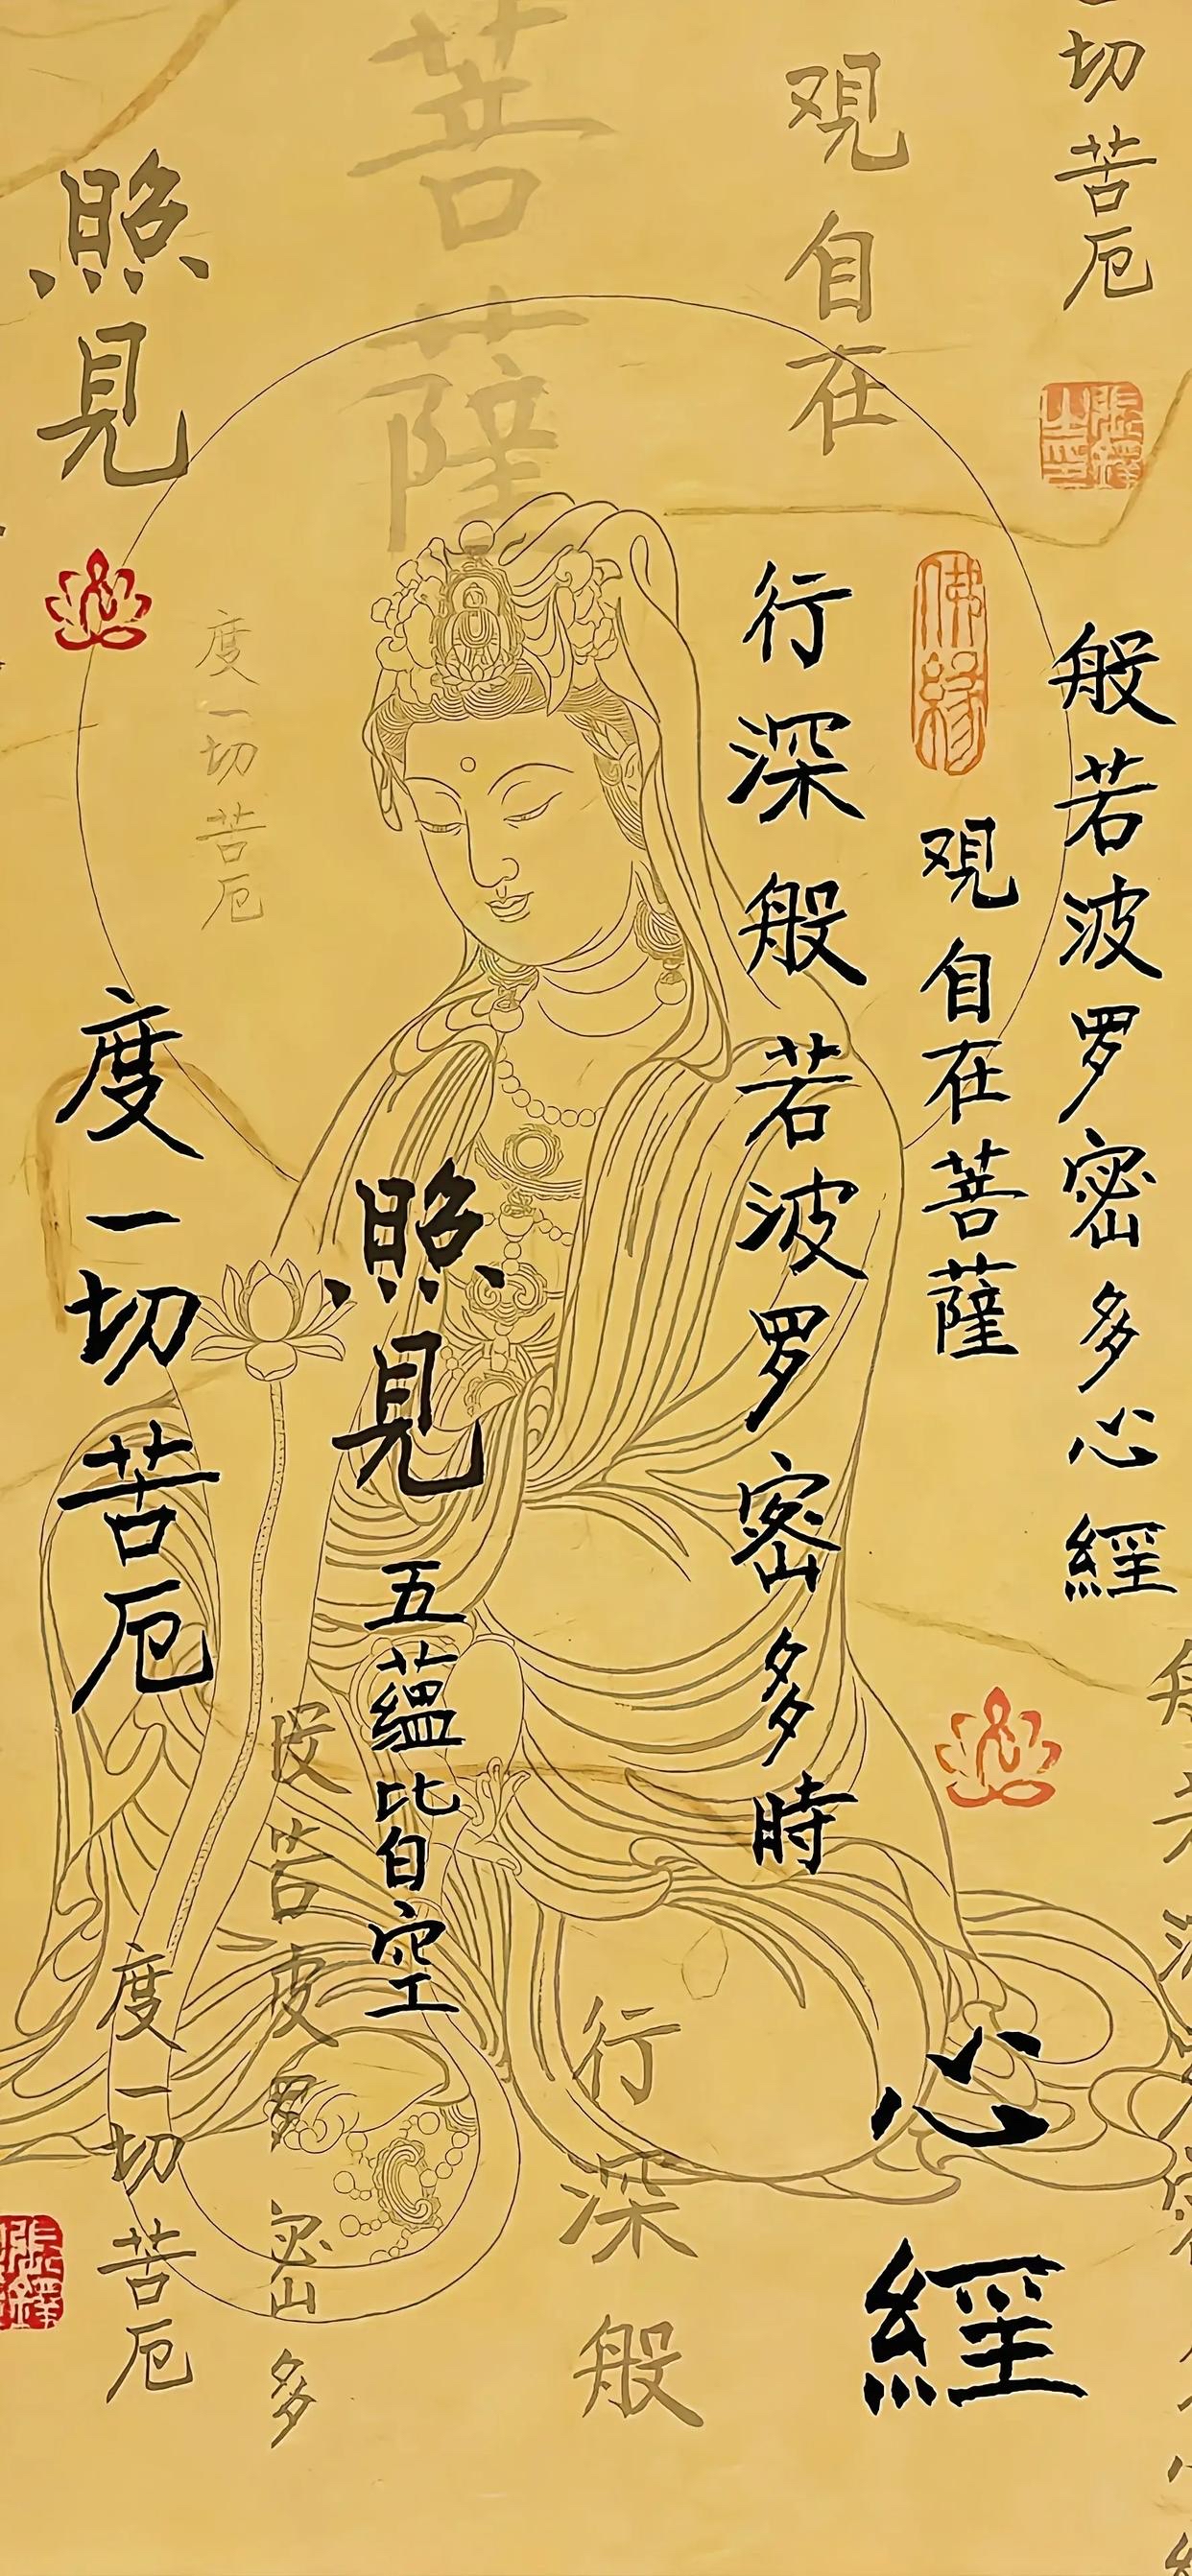 切苦厄
般若波罗密多心經
佛緣
观自在菩薩
观自在
行深般若波罗密多時
心經
菩薩
行深般
照見
五蘊皆空
度一切苦厄
波罗密多
照見
度一切苦厄
度一切苦厄